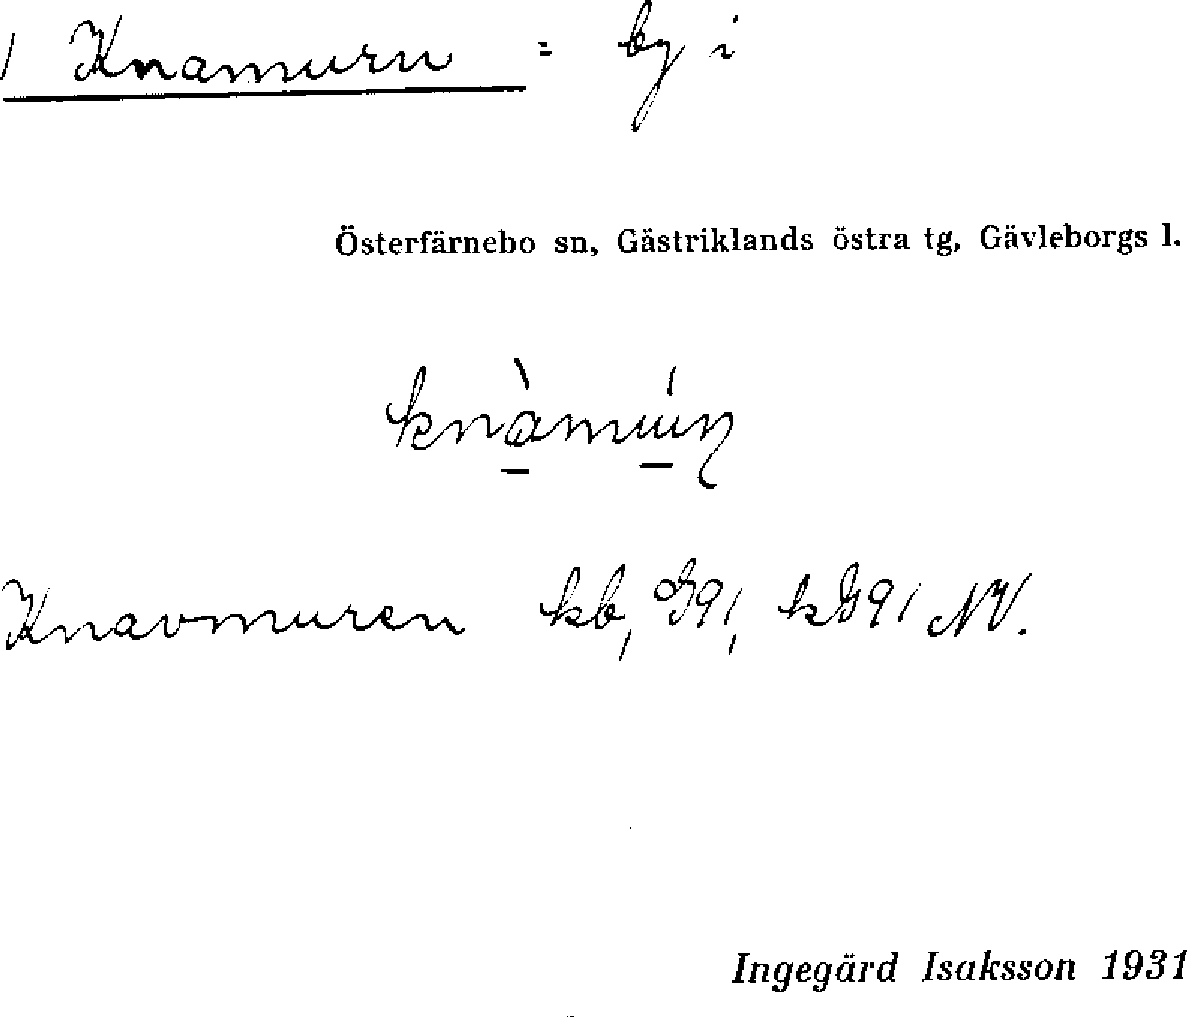 1 Knamurn = by i
Österfärnebo sn, Gästriklands östra tg, Gävleborgs l.
knàmún
Knavmuren kb, G91, kG91 NV.
Ingegärd Isaksson 1931